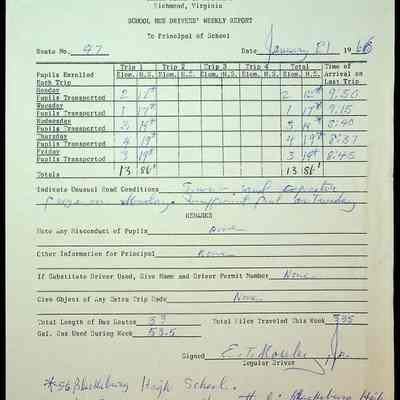 Richmond, Virginia
SCHOOL BUS DRIVERS' WEEKLY REPORT
To Principal of School
Route No. 97 Date January 21 1966
Trip 1 Trip 2 Trip 3 Trip 4 Total Time of
Pupils Enrolled Elem. H.S. Elem. H.S. Elem. H.S. Elem. H.S. Elem. H.S. Arrival on
Each Trip Last Trip
Monday
Pupils Transported 2 2 9:50
Tuesday
Pupils Transported 1 17 1 17 9:15
Wednesday
Pupils Transported 3 3 8:40
Thursday
Pupils Transported 4 19 4 19 8:37
Friday
Pupils Transported 3 19 3 19 8:45
Totals 13 86 13 86
Indicate Unusual Road Conditions Snow and
froze on Monday. on Tuesday
REMARKS
Note Any Misconduct of Pupils None
Other Information for Principal None
If Substitute Driver Used, Give Name and Driver Permit Number None
Give Object of Any Extra Trip Made None
Total Length of Bus Routes 33 Total Miles Traveled This Week 335
Gal. Gas Used During Week 53.5
Signed E. T. Jr.
Regular Driver
*86 Blacksburg High School.
Blacksburg High